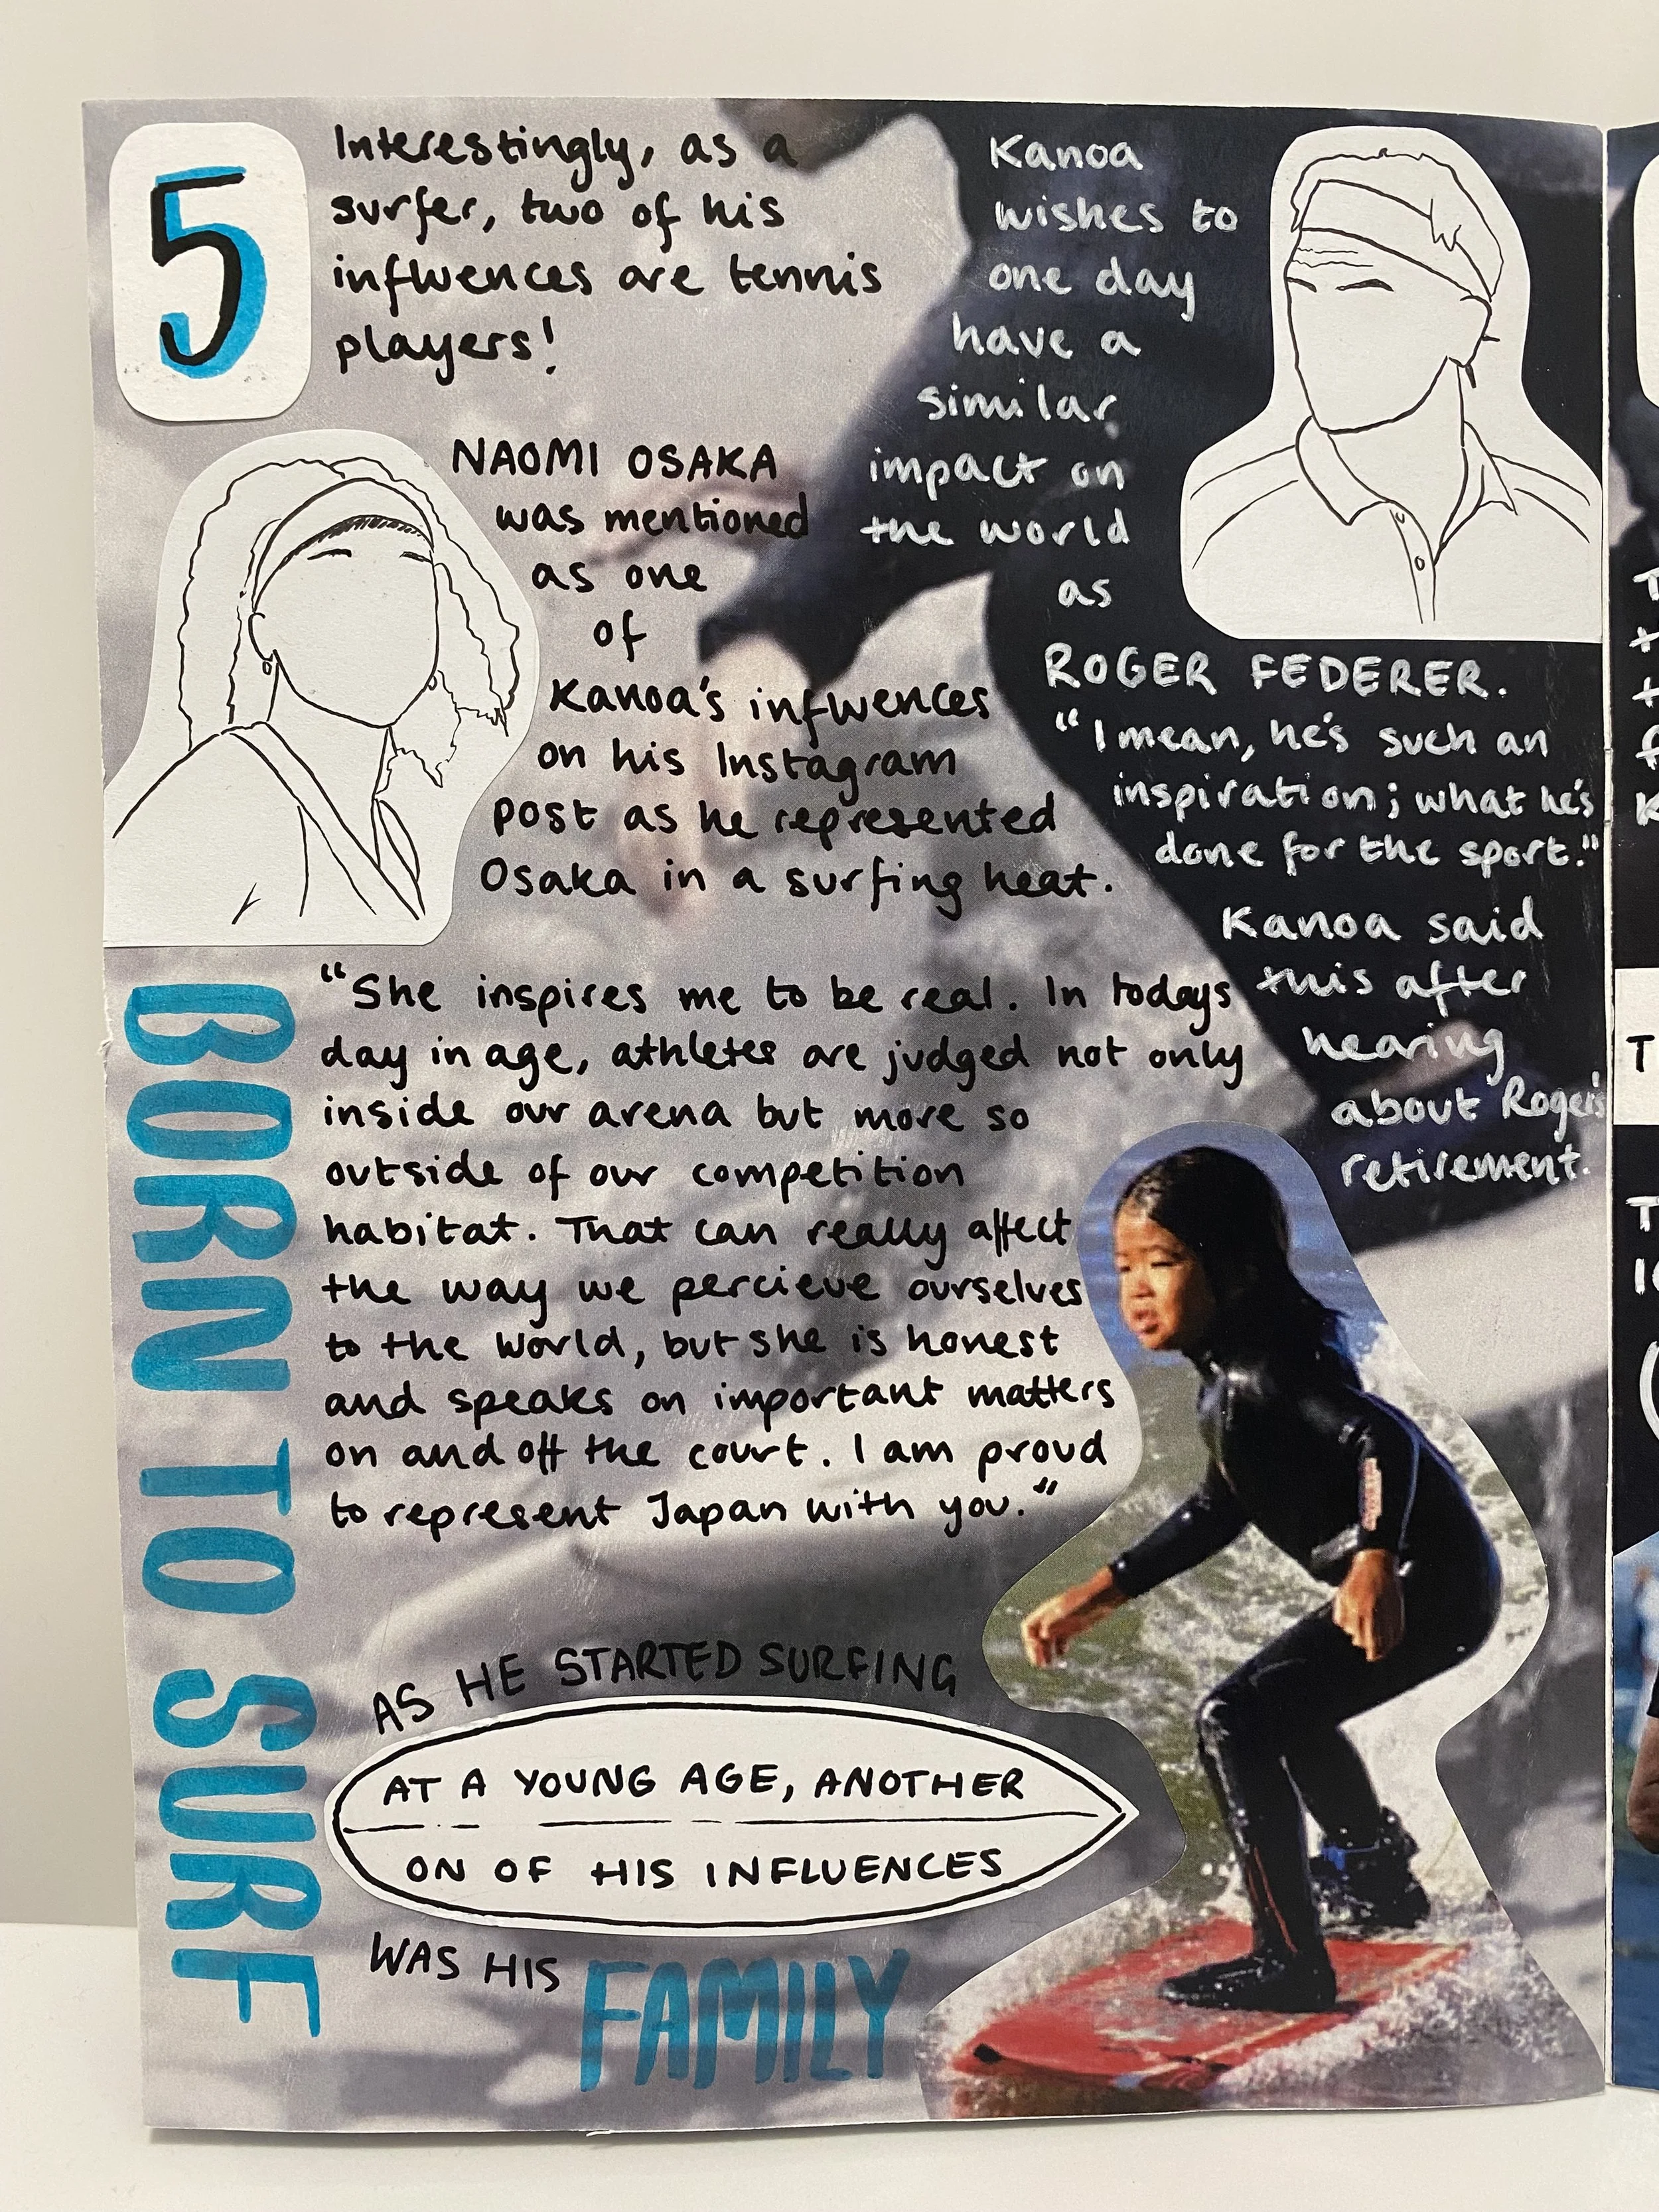 5
Interestingly, as a
surfer, two of his
influences are tennis
players!
NAOMI OSAKA
was mentioned
as one
of
Kanoa's influences
on his Instagram
post as he represented
Osaka in a surfing heat.
"She inspires me to be real. In todays
day in age, athletes are judged not only
inside our arena but more so
outside of our competition
habitat. That can really affect
the way we percieve ourselves
to the world, but she is honest
and speaks on important matters
on and off the court. I am proud
to represent Japan with you."
Kanoa
wishes to
one day
have a
similar
impact on
the world
as
ROGER FEDERER.
"I mean, he's such an
inspiration; what he's
done for the sport."
Kanoa said
this after
hearing
about Roger's
retirement.
BORN TO SURF
AS HE STARTED SURFING
AT A YOUNG AGE, ANOTHER
ON OF HIS INFLUENCES
WAS HIS FAMILY